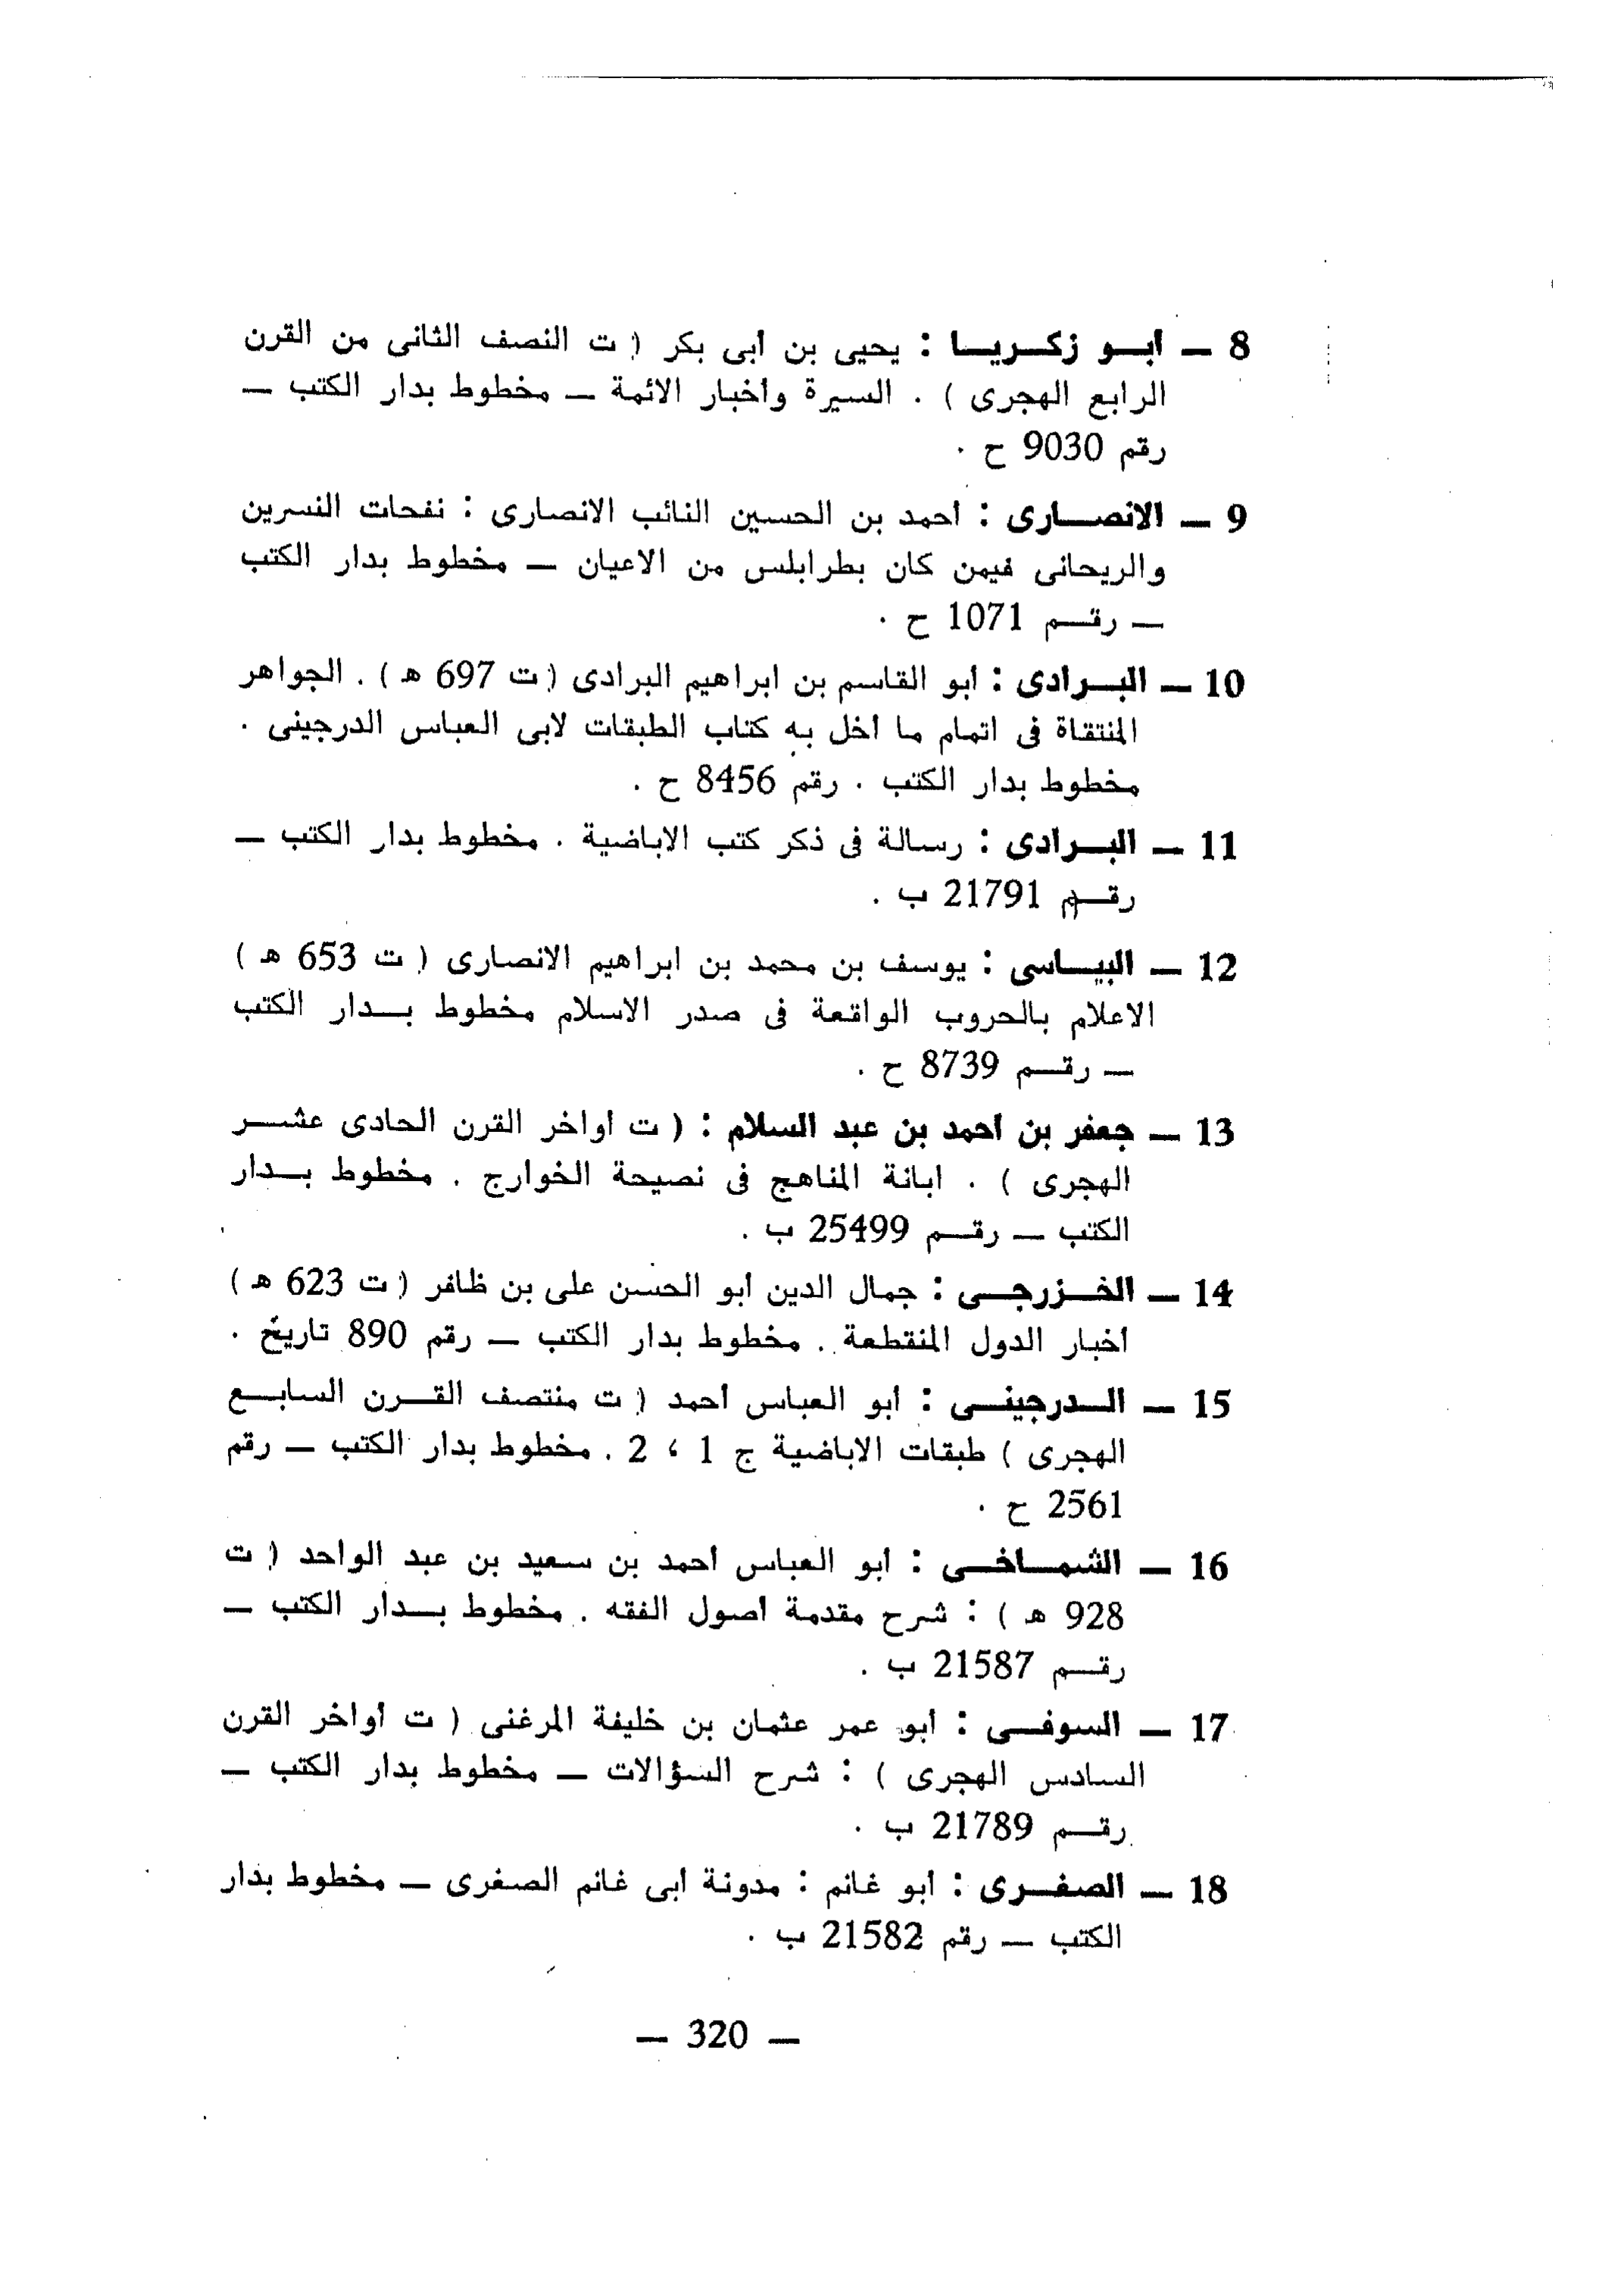 8 — أبو زكريا : يحيى بن أبى بكر ( ت النصف الثانى من القرن
الرابع الهجرى ) . السيرة وأخبار الائمة — مخطوط بدار الكتب —
رقم 9030 ح .
9 — الانصارى : احمد بن الحسين النائب الانصارى : نفحات النسرين
والريحانى فيمن كان بطرابلس من الاعيان — مخطوط بدار الكتب
— رقم 1071 ح .
10 — البرادى : ابو القاسم بن ابراهيم البرادى ( ت 697 ه ) . الجواهر
المنتقاة فى اتمام ما أخل به كتاب الطبقات لابى العباس الدرجينى .
مخطوط بدار الكتب . رقم 8456 ح .
11 — البرادى : رسالة فى ذكر كتب الاباضية . مخطوط بدار الكتب —
رقم 21791 ب .
12 — البياسى : يوسف بن محمد بن ابراهيم الانصارى ( ت 653 ه )
الاعلام بالحروب الواقعة فى صدر الاسلام مخطوط بدار الكتب
— رقم 8739 ح .
13 — جعفر بن احمد بن عبد السلام : ( ت أواخر القرن الحادى عشر
الهجرى ) . ابانة المناهج فى نصيحة الخوارج . مخطوط بدار
الكتب — رقم 25499 ب .
14 — الخزرجى : جمال الدين ابو الحسن على بن ظافر ( ت 623 ه )
أخبار الدول المنقطعة . مخطوط بدار الكتب — رقم 890 تاريخ .
15 — الدرجينى : ابو العباس أحمد ( ت منتصف القرن السابع
الهجرى ) طبقات الاباضية ج 1 ، 2 . مخطوط بدار الكتب — رقم
2561 ح .
16 — الشماخى : ابو العباس أحمد بن سعيد بن عبد الواحد ( ت
928 ه ) : شرح مقدمة أصول الفقه . مخطوط بدار الكتب —
رقم 21587 ب .
17 — السوفى : أبو عمر عثمان بن خليفة المرغنى ( ت أواخر القرن
السادس الهجرى ) : شرح السؤالات — مخطوط بدار الكتب —
رقم 21789 ب .
18 — الصفرى : أبو غانم : مدونة ابى غانم الصفرى — مخطوط بدار
الكتب — رقم 21582 ب .
— 320 —